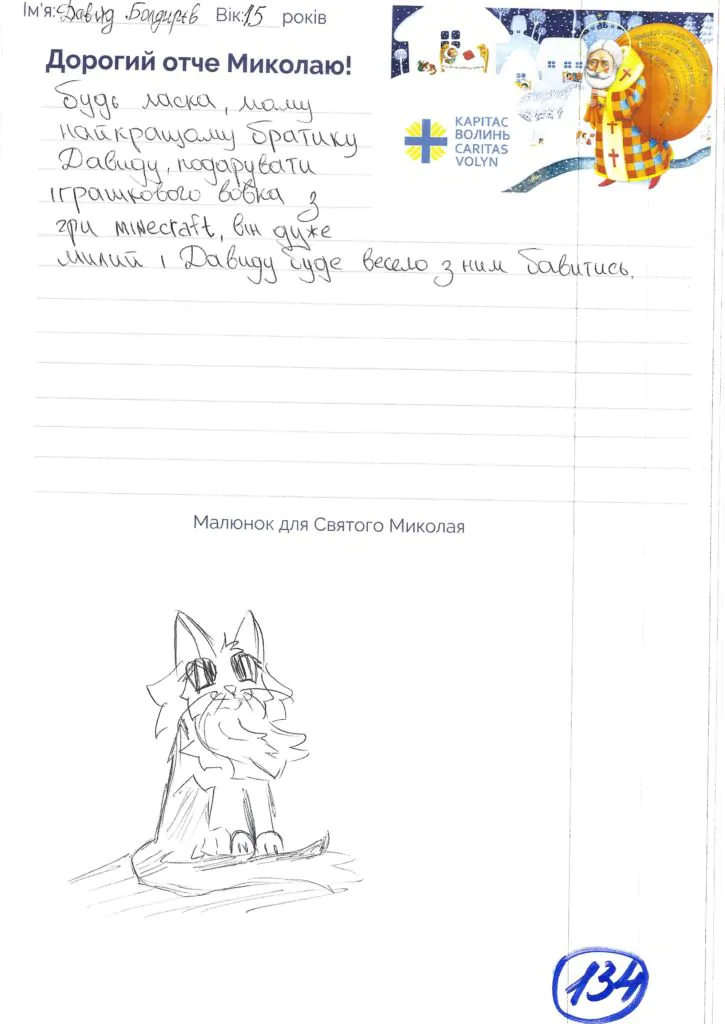 Ім'я: Давид Болдирєв Вік: 15 років
Дорогий отче Миколаю!
Будь ласка, мому
найкращому братику
Давиду, подарувати
іграшкового вовка з
гри minecraft, він дуже
милий і Давиду буде весело з ним бавитись.
КАРІТАС
ВОЛИНЬ
CARITAS
VOLYN
Малюнок для Святого Миколая
134